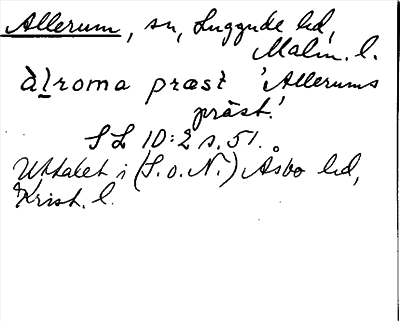 Allerum, sn, Luggude hd,
Malm. l.
àḷroma præst 'Allerums
präst.'
SL 10:2 s. 51.
Uttalet i (S. o. N.) Åsbo hd,
Krist. l.